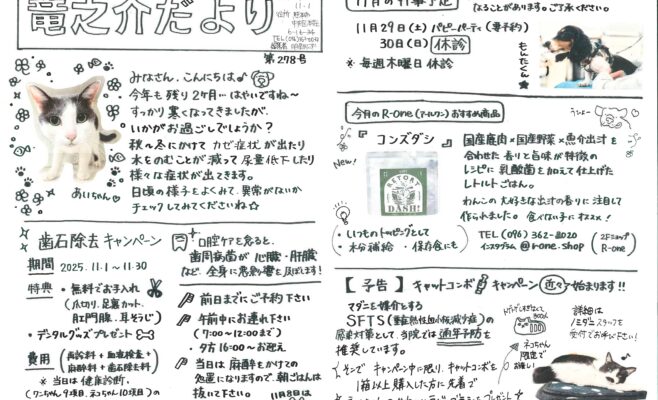 竜之介だより
11-1
第278号
みなさん、こんにちは♪
今年も残り2ヶ月…はやいですね〜
すっかり寒くなってきましたが、
いかがお過ごしでしょうか?
秋〜冬にかけて カゼ症状が出たり
水をのむことが減って尿量低下したり
様々な症状が出てきます。
日頃の様子をよくみて、異常がないか
チェックしてみてくださいね☆
あいちゃん♡
歯石除去キャンペーン
期間 2025.11.1〜11.30
特典 ・無料でお手入れ
(爪切り、足裏カット、
肛門腺、耳そうじ)
・デンタルグッズプレゼント
費用 (再診料+血液検査+
麻酔料+歯石除去料)
※ 当日は健康診断、
(ワンちゃん9項目、ネコちゃん10項目)の
口腔ケアを怠ると、
歯周病菌が 心臓・肝臓
など、全身に悪影響を及ぼします!
前日までにご予約下さい
午前中にお連れ下さい
(7:00〜12:00まで)
・夕方16:00〜お迎え
当日は麻酔をかけての
処置になりますので、朝ごはんは
抜いて下さい。
11月8日は
11月の行事予定
なることがあります。ご了承ください。
11月29日(土) パピーパーティ(要予約)
30日(日) 休診
※ 毎週木曜日 休診
もんたくん★
今月のR-one(アールワン)おすすめ商品
『 コンズダシ 』
New!
RETORT
DASH!
国産鹿肉×国産野菜×魚介出汁を
合わせた 香りと旨味が特徴の
レシピに 乳酸菌を加えて仕上げた
レトルトごはん。
わんこの大好きな出汁の香りに注目して
作られました。食べない子にオススメ!
・いつものトッピングとして
・水分補給 ・保存食にも
TEL (096) 362-8020
インスタグラム @r-one.shop
(2Fショップ
R-one)
【予告】キャットコンボ キャンペーン 近々始まります!!
マダニを媒介とする
SFTS(重症熱性血小板減少症)の
感染対策として、当院では通年予防を
推奨しています。
そこで キャンペーン中に限り、キャットコンボを
1箱以上購入した方に先着で
ネコちゃん
限定で
お願い
詳細は
スタッフを
受付でお呼び下さい!